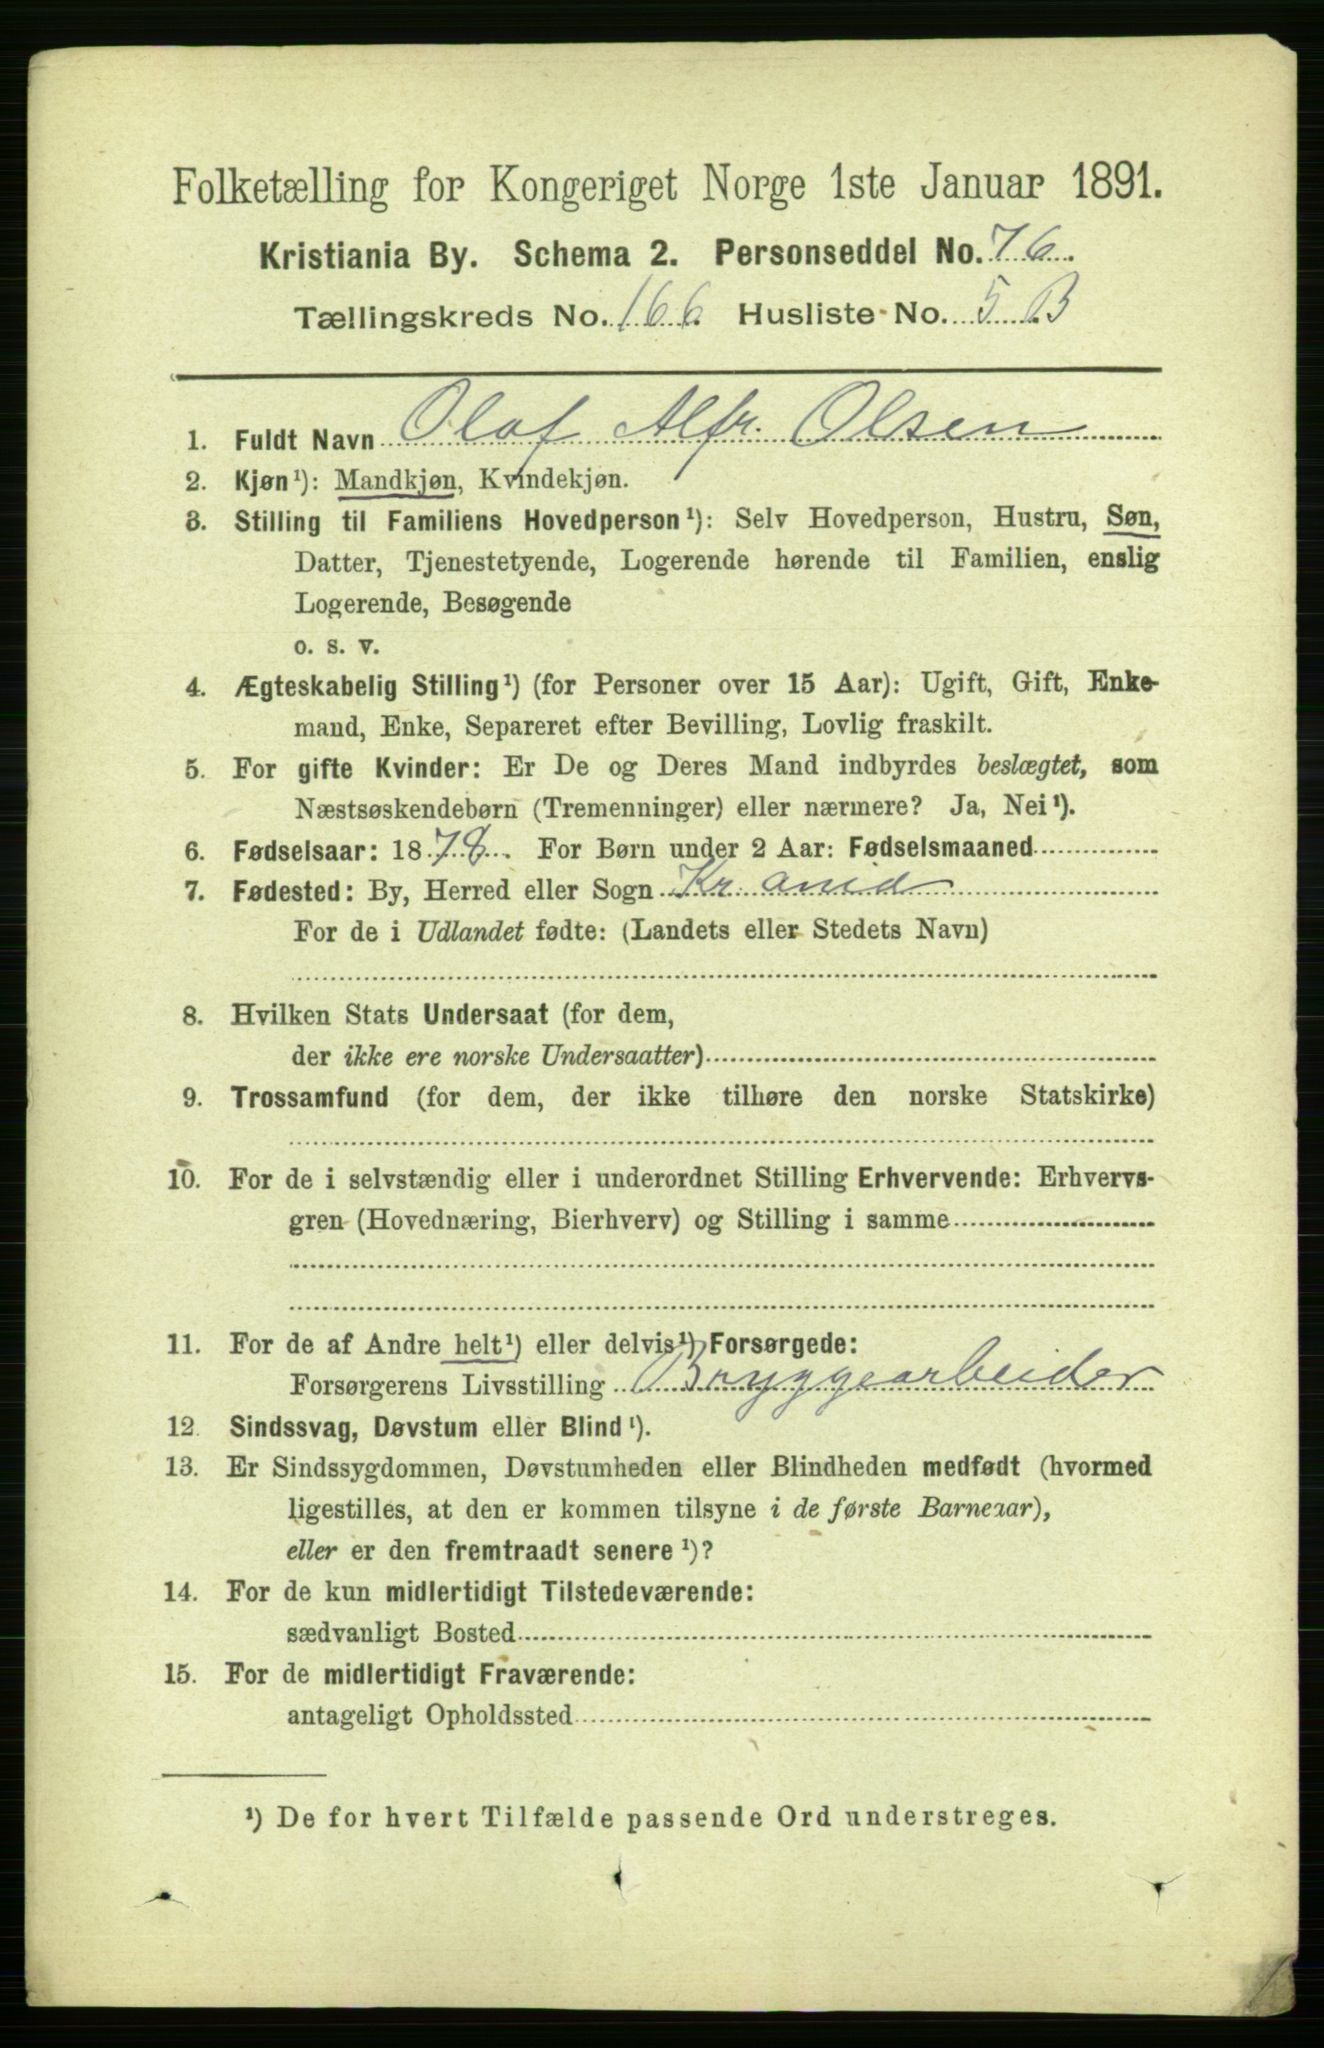 Folketælling for Kongeriget Norge 1ste Januar 1891.
Kristiania By. Schema 2. Personseddel No. 76.
Tællingskreds No. 166 Husliste No. 5 B
1. Fuldt Navn Olaf Alfr. Olsen
2. Kjøn¹): Mandkjøn, Kvindekjøn.
3. Stilling til Familiens Hovedperson¹): Selv Hovedperson, Hustru, Søn,
Datter, Tjenestetyende, Logerende hørende til Familien, enslig
Logerende, Besøgende
o. s. v.
4. Ægteskabelig Stilling¹) (for Personer over 15 Aar): Ugift, Gift, Enke-
mand, Enke, Separeret efter Bevilling, Lovlig fraskilt.
5. For gifte Kvinder: Er De og Deres Mand indbyrdes beslægtet, som
Næstsøskendebørn (Tremenninger) eller nærmere? Ja, Nei¹).
6. Fødselsaar: 1878. For Børn under 2 Aar: Fødselsmaaned
7. Fødested: By, Herred eller Sogn Kr.
For de i Udlandet fødte: (Landets eller Stedets Navn)
8. Hvilken Stats Undersaat (for dem,
der ikke ere norske Undersaatter)
9. Trossamfund (for dem, der ikke tilhøre den norske Statskirke)
10. For de i selvstændig eller i underordnet Stilling Erhvervende: Erhvervs-
gren (Hovednæring, Bierhverv) og Stilling i samme
11. For de af Andre helt¹) eller delvis¹) Forsørgede:
Forsørgerens Livsstilling Bryggearbeider
12. Sindssvag, Døvstum eller Blind¹).
13. Er Sindssygdommen, Døvstumheden eller Blindheden medfødt (hvormed
ligestilles, at den er kommen tilsyne i de første Barneaar),
eller er den fremtraadt senere¹)?
14. For de kun midlertidigt Tilstedeværende:
sædvanligt Bosted
15. For de midlertidigt Fraværende:
antageligt Opholdssted
¹) De for hvert Tilfælde passende Ord understreges.